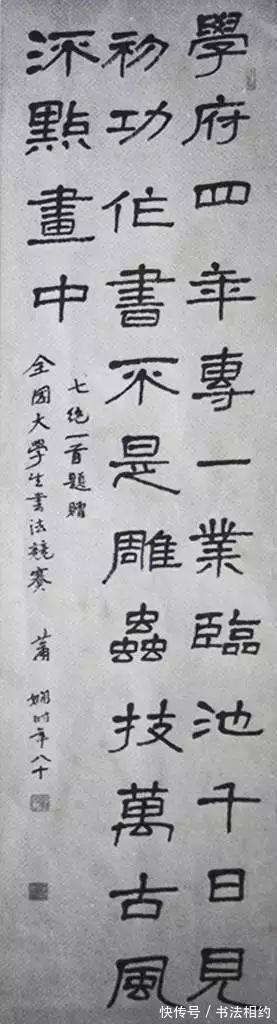 學府四年專一業臨池千日見
初功作書不是雕蟲技萬古風
流點畫中
七絕一首題贈
全國大學生書法競賽 蕭嫻時年八十
快传号 / 书法相约